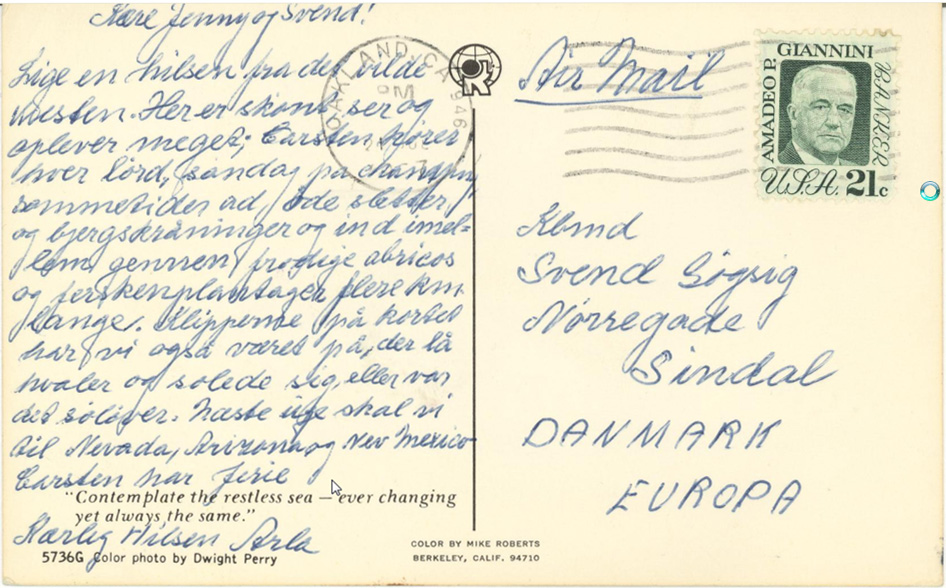 Kære Jenny og Svend!
Lige en hilsen fra det vilde
vesten. Her er skønt ser og
oplever meget; Carsten kører
hver lørd, søndag på
sommetider ad øde sletter,
og bjergskråninger og ind imel-
lem gennem frodige abricos
og ferskenplantager flere km
lange. Klipperne på kortet
har vi også været på, der lå
hvaler og solede sig, eller var
det søløver. Næste uge skal vi
til Nevada, Arizona og New Mexico
Carsten har ferie
"Contemplate the restless sea — ever changing
yet always the same."
Kærlig Hilsen Arla
5736G Color photo by Dwight Perry
OAKLAND, CA 946
PM
COLOR BY MIKE ROBERTS
BERKELEY, CALIF. 94710
Air Mail
AMADEO P. GIANNINI
BANKER
U.S.A. 21c
Kbmd
Svend Gøgsig
Nørregade
Sindal
DANMARK
EUROPA